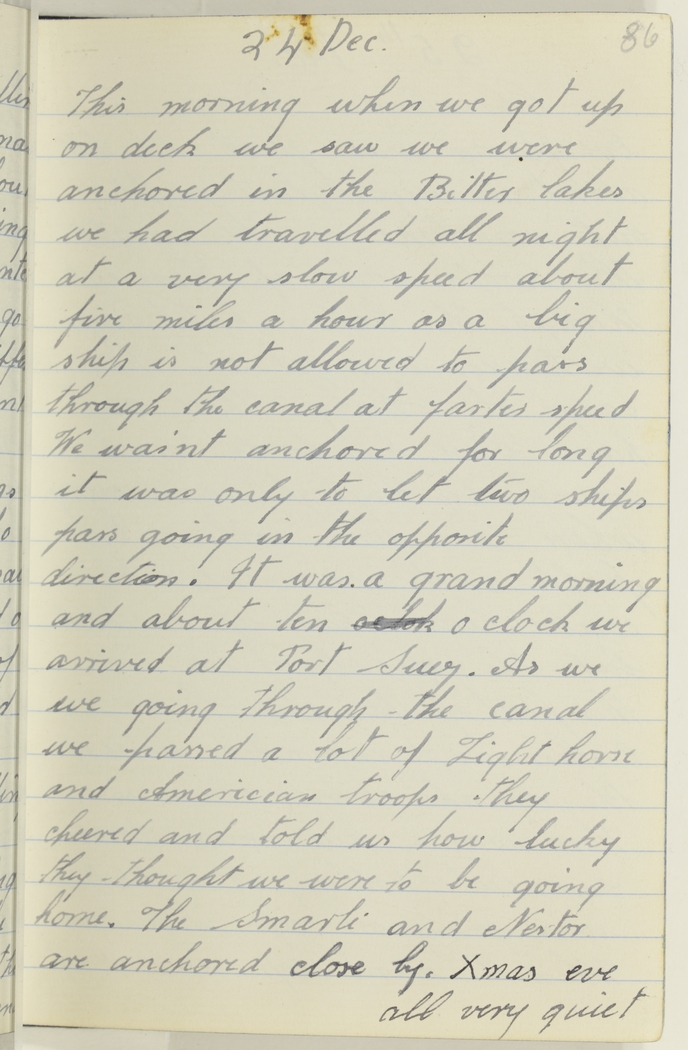 24 Dec.
86
This morning when we got up
on deck we saw we were
anchored in the Bitter lakes
we had travelled all night
at a very slow speed about
five miles a hour as a big
ship is not allowed to pass
through the canal at farter speed
We wasint anchored for long
it was only to let two ships
pass going in the opposite
direction. It was a grand morning
and about ten o clock we
arrived at Port Suez. As we
we going through the canal
we passed a lot of Light horse
and Americian troops they
cheered and told us how lucky
they thought we were to be going
home. The Smarli and Nestor
are anchored close by. Xmas eve
all very quiet